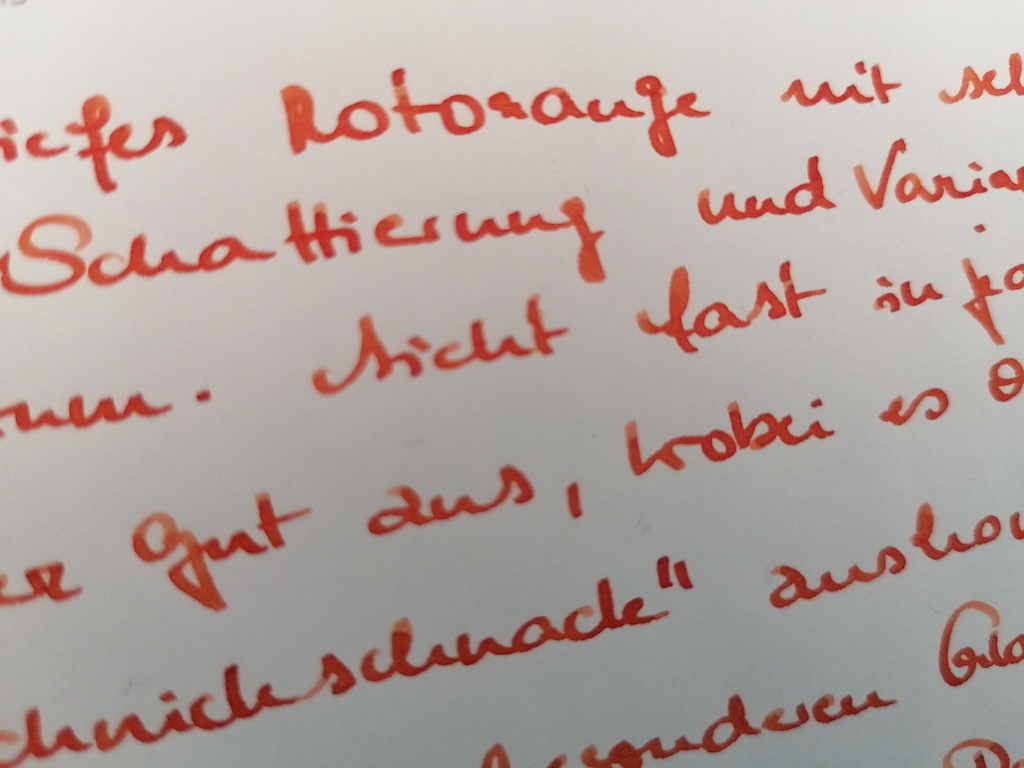 iefes Rotorange mit seh
Schattierung und Varian
nnen. Sieht fast in ja
er gut aus, wobei es o
chnickschnack" auskom
besonderen Gla